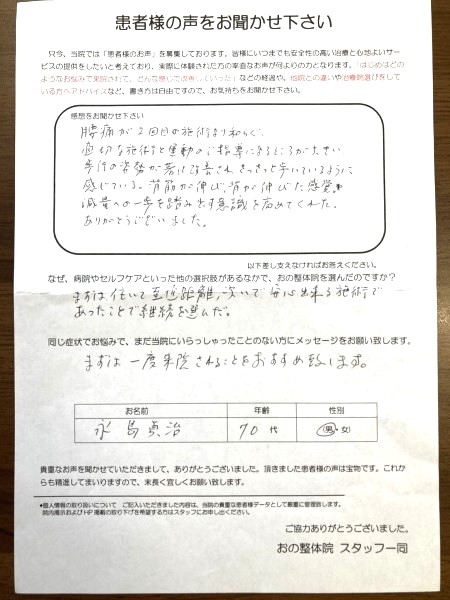 患者様の声をお聞かせ下さい
只今、当院では「患者様のお声」を募集しております。皆様にいつまでも安全性の高い治療と心地よいサー
ビスの提供をしたいと考えており、実際に体験された方の率直なお声が何よりの力となります。「はじめはどの
ようなお悩みで来院されて、どんな感じで改善していった」などの経過や、他院との違いや治療院選びをして
いる方へアドバイスなど、書き方は自由ですので、お気持ちをお聞かせ下さい。
感想をお聞かせ下さい
腰痛が2回目の施術より和らぐ、
適切な施術と運動のご指導によるところが大きい
歩行の姿勢が著しく改善され、さっさっと歩いているように
感じている。背筋が伸び、背が伸びた感覚。
減量への一歩を踏み出す意識を高めてくれた。
ありがとうございました。
以下差し支えなければお答えください。
なぜ、病院やセルフケアといった他の選択肢があるなかで、おの整体院を選んだのですか？
まずは住いて至近距離、次いで安心出来る施術で
あったことで継続を選んだ。
同じ症状でお悩みで、まだ当院にいらっしゃったことのない方にメッセージをお願い致します。
まずは一度来院されることをおすすめ致します。
お名前 年齢 性別
永島 治 70代 男・女
貴重なお声を聞かせていただきまして、ありがとうございました。頂きました患者様の声は宝物です。これか
らも精進してまいりますので、末長く宜しくお願い致します。
●個人情報の取り扱いについて ご記入いただきました内容は、当院の貴重な患者様データとして厳重に管理致します。
院内掲示およびHP掲載の取り下げを希望する方はスタッフにお申し出ください。
ご協力ありがとうございました。
おの整体院 スタッフ一同